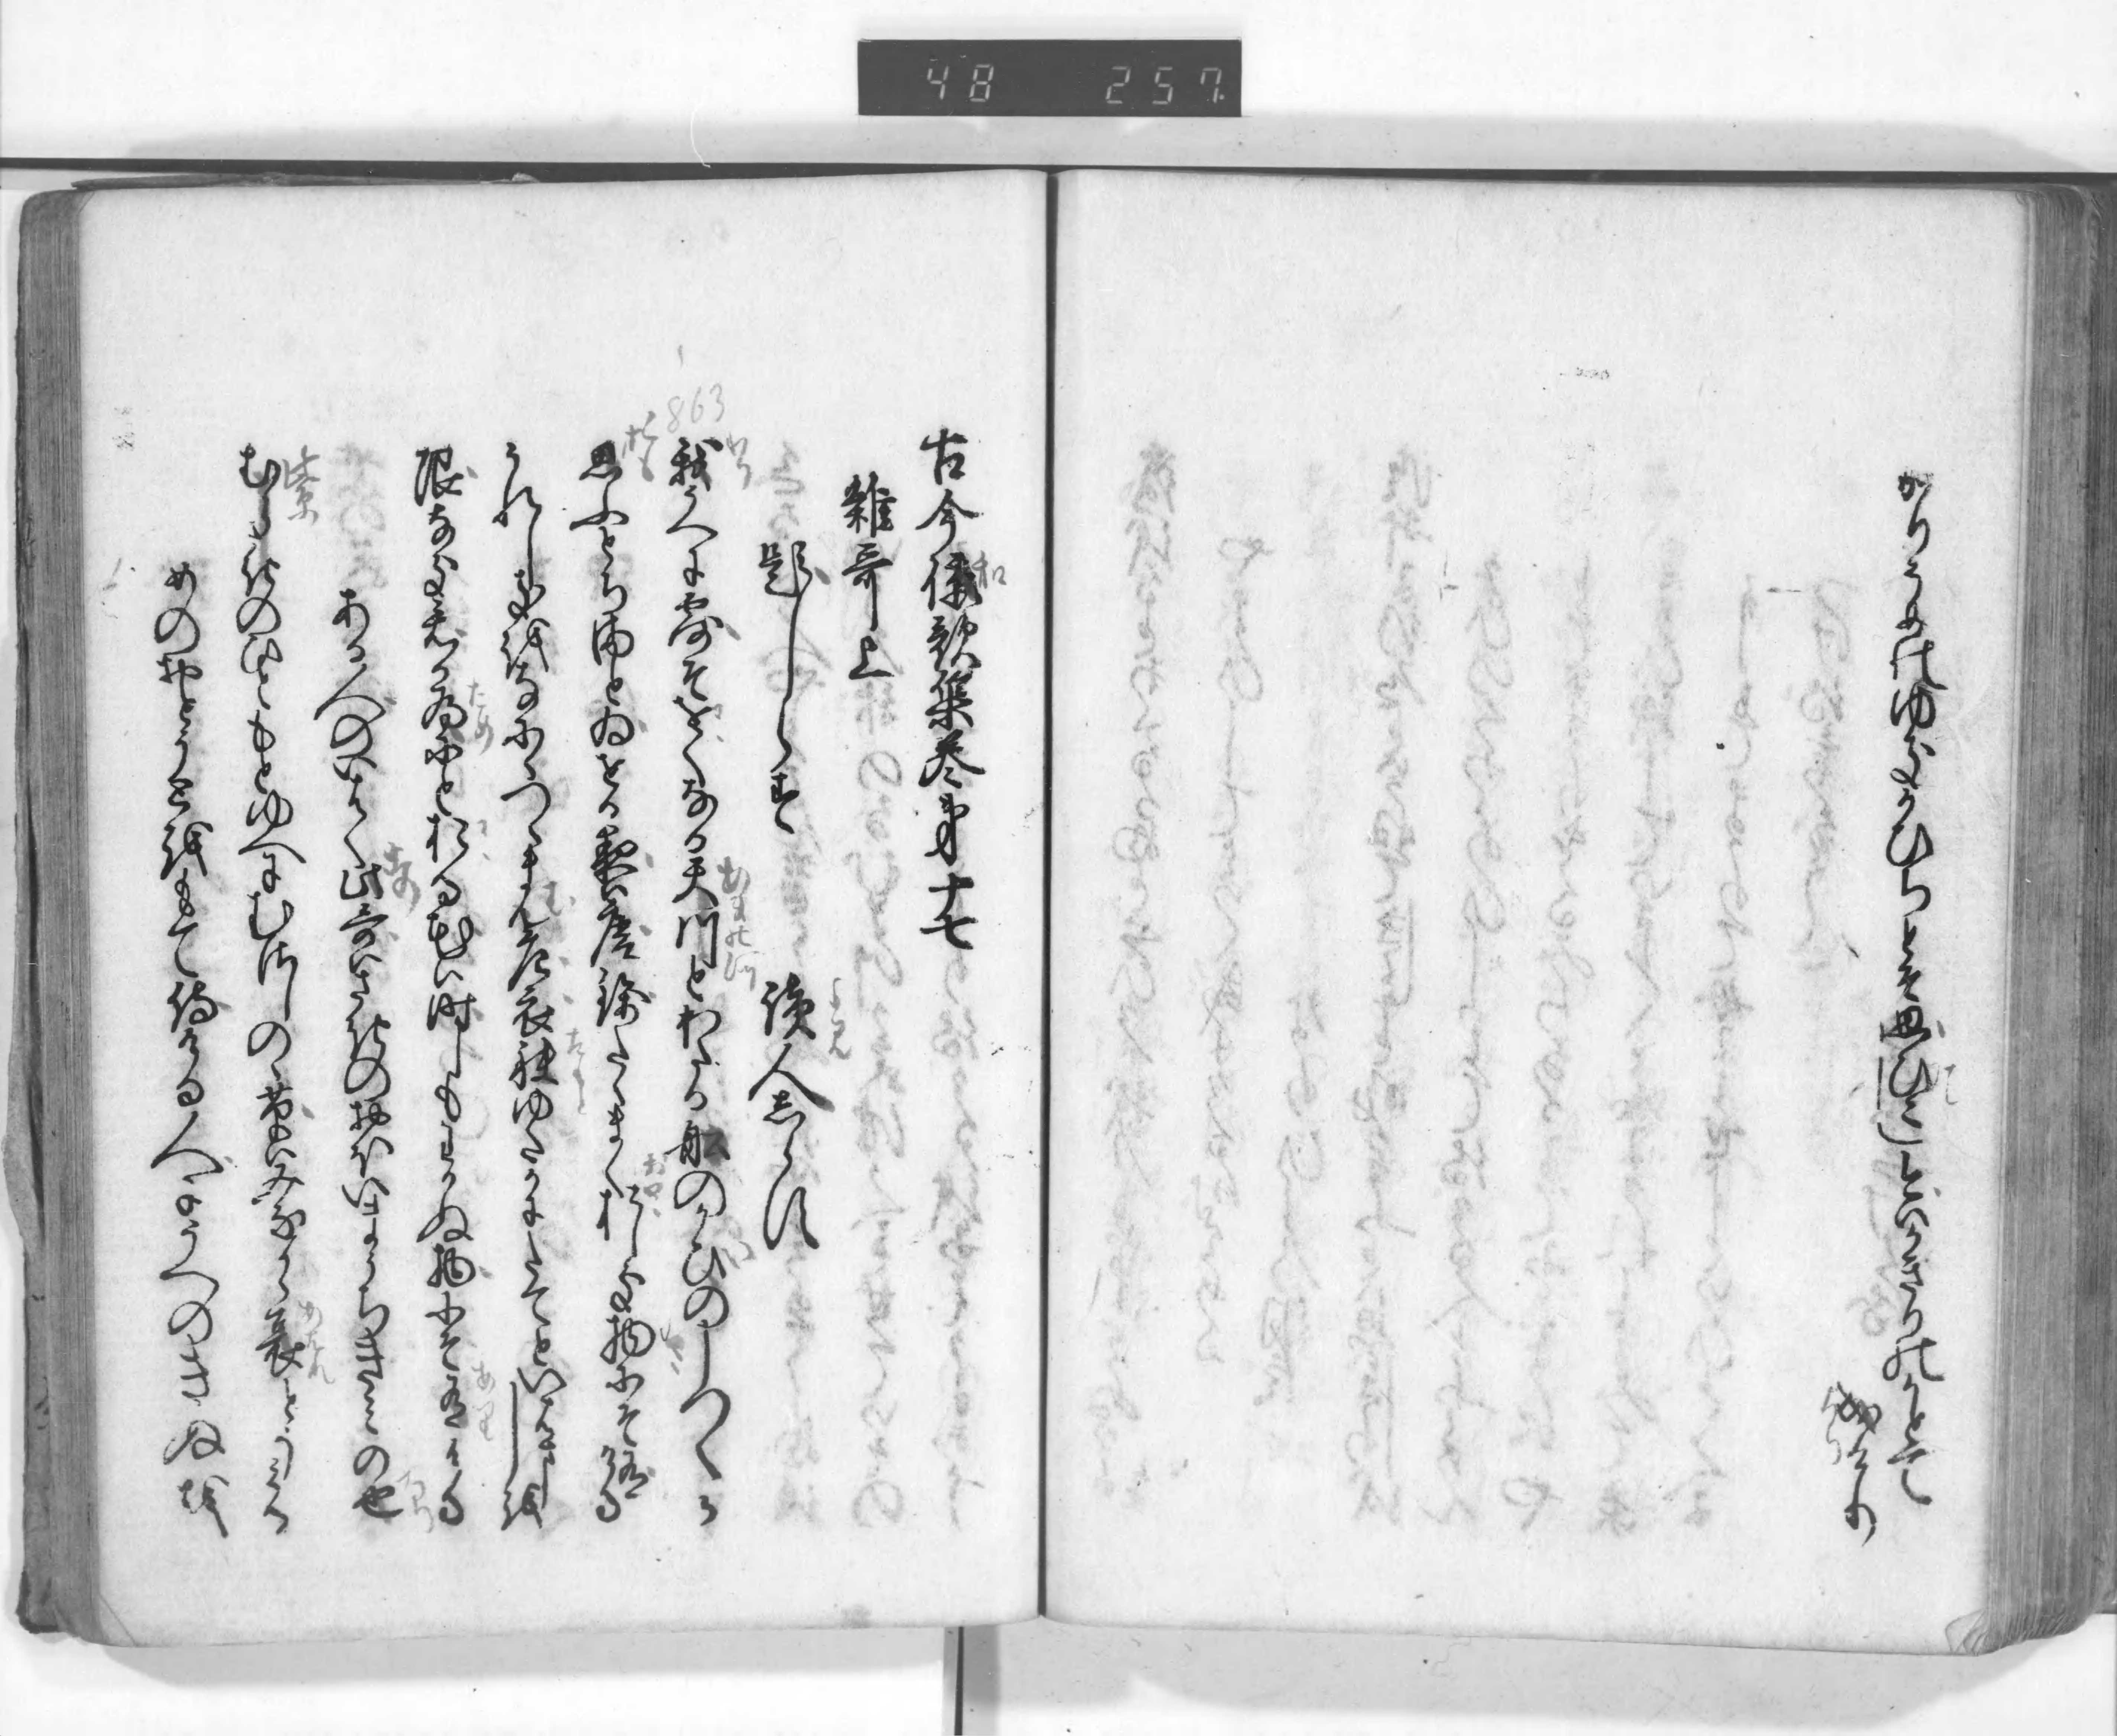 48 257
かりそめのゆきかひちとそ思ひこし今はかきりのかとて
なりけり
古今倭歌集巻第十七
和
雑哥上
題しらす
読人しらす
よみ
863
我うへに露そをくなる天川とわたる船のかひのしつくか
わか
あまの河
思ふとちまとゐせる夜は唐錦たゝまくおしき物にそ有ける
おも
うれしきを何につゝまん唐衣袂ゆたかにたてといはましを
む
たもと
限なき君か為にとおる花は時しもわかぬ物にそ有ける
ため
あり
ある人のいはく此哥はさきのおほいまうちきみの也
むらさきのひともとゆへにむさしのゝ草はみなから哀とそみる
紫
あはれ
めのおとうとをもて侍ける人にうへのきぬを